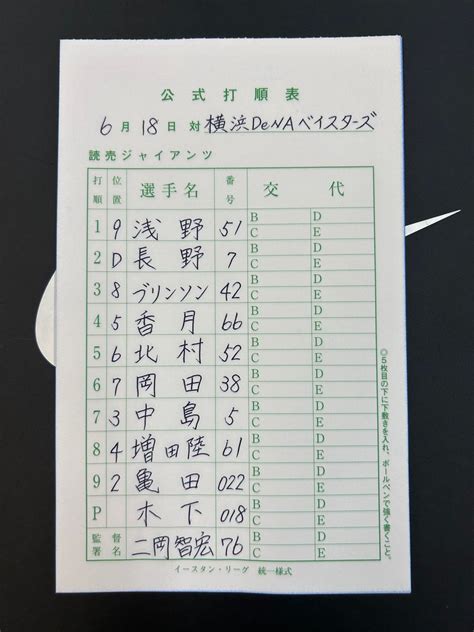 公式打順表
6月18日 対 横浜DeNAベイスターズ
読売ジャイアンツ
打順 位置 選手名 番号 交代
1 9 浅野 51 B D C E
2 D 長野 7 B D C E
3 8 ブリンソン 42 B D C E
4 5 香月 66 B D C E
5 6 北村 52 B D C E
6 7 岡田 38 B D C E
7 3 中島 5 B D C E
8 4 増田陸 61 B D C E
9 2 亀田 022 B D C E
P 木下 018 B D C E
監督署名 二岡智宏 76 B D C E
イースタン・リーグ 統一様式
◎5枚目の下に下敷きを入れ、ボールペンで強く書くこと。